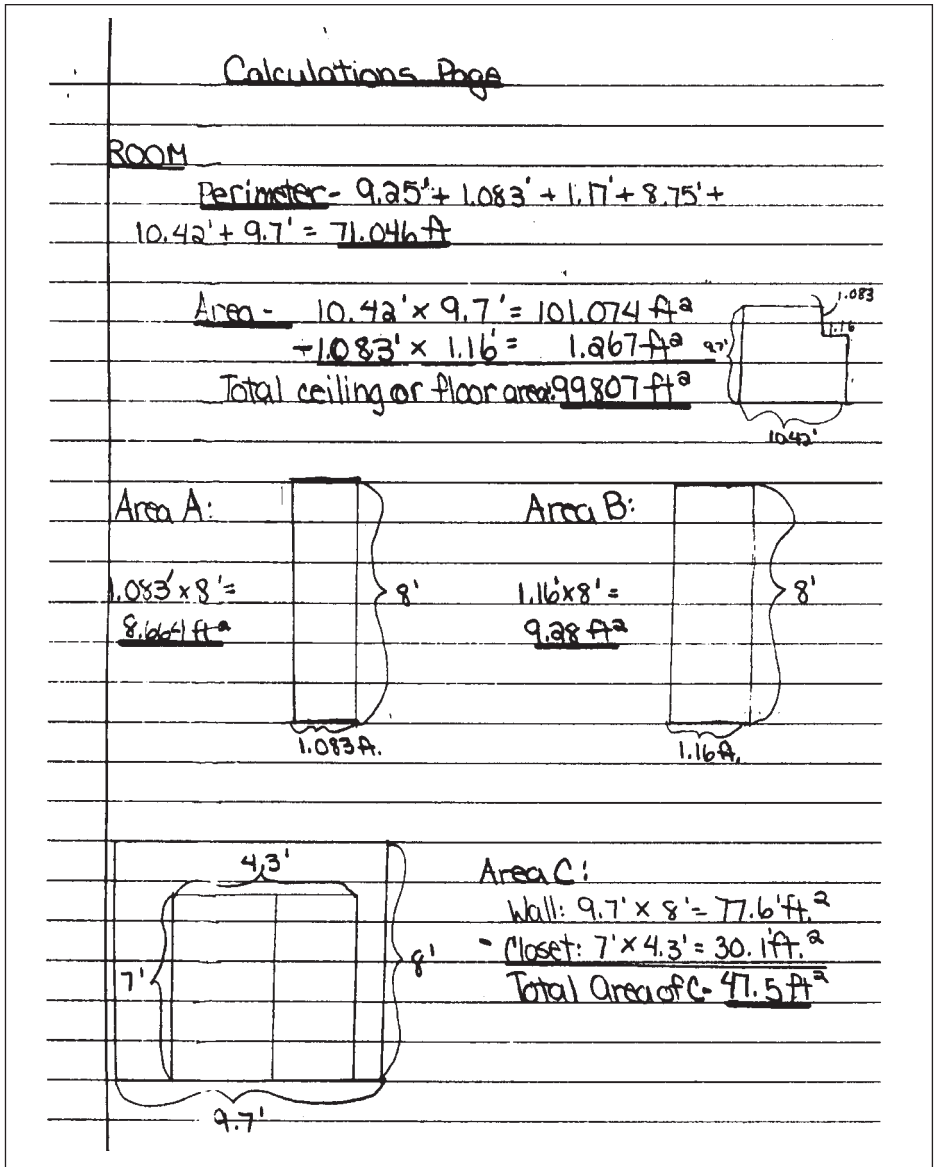 Calculations Page
ROOM
Perimeter- 9.25' + 1.083' + 1.17' + 8.75' +
10.42' + 9.7' = 71.046 ft
Area - 10.42' × 9.7' = 101.074 ft²
-1.083' × 1.16' = 1.267 ft²
Total ceiling or floor area: 99.807 ft²
1.083
1.16
9.7'
10.42'
Area A:
1.083' × 8' =
8.664 ft²
8'
1.083 ft.
Area B:
1.16' × 8' =
9.28 ft²
8'
1.16 ft.
4.3'
7'
8'
9.7'
Area C:
Wall: 9.7' × 8' = 77.6' ft.²
- Closet: 7' × 4.3' = 30.1' ft.²
Total Area of C- 47.5 ft²